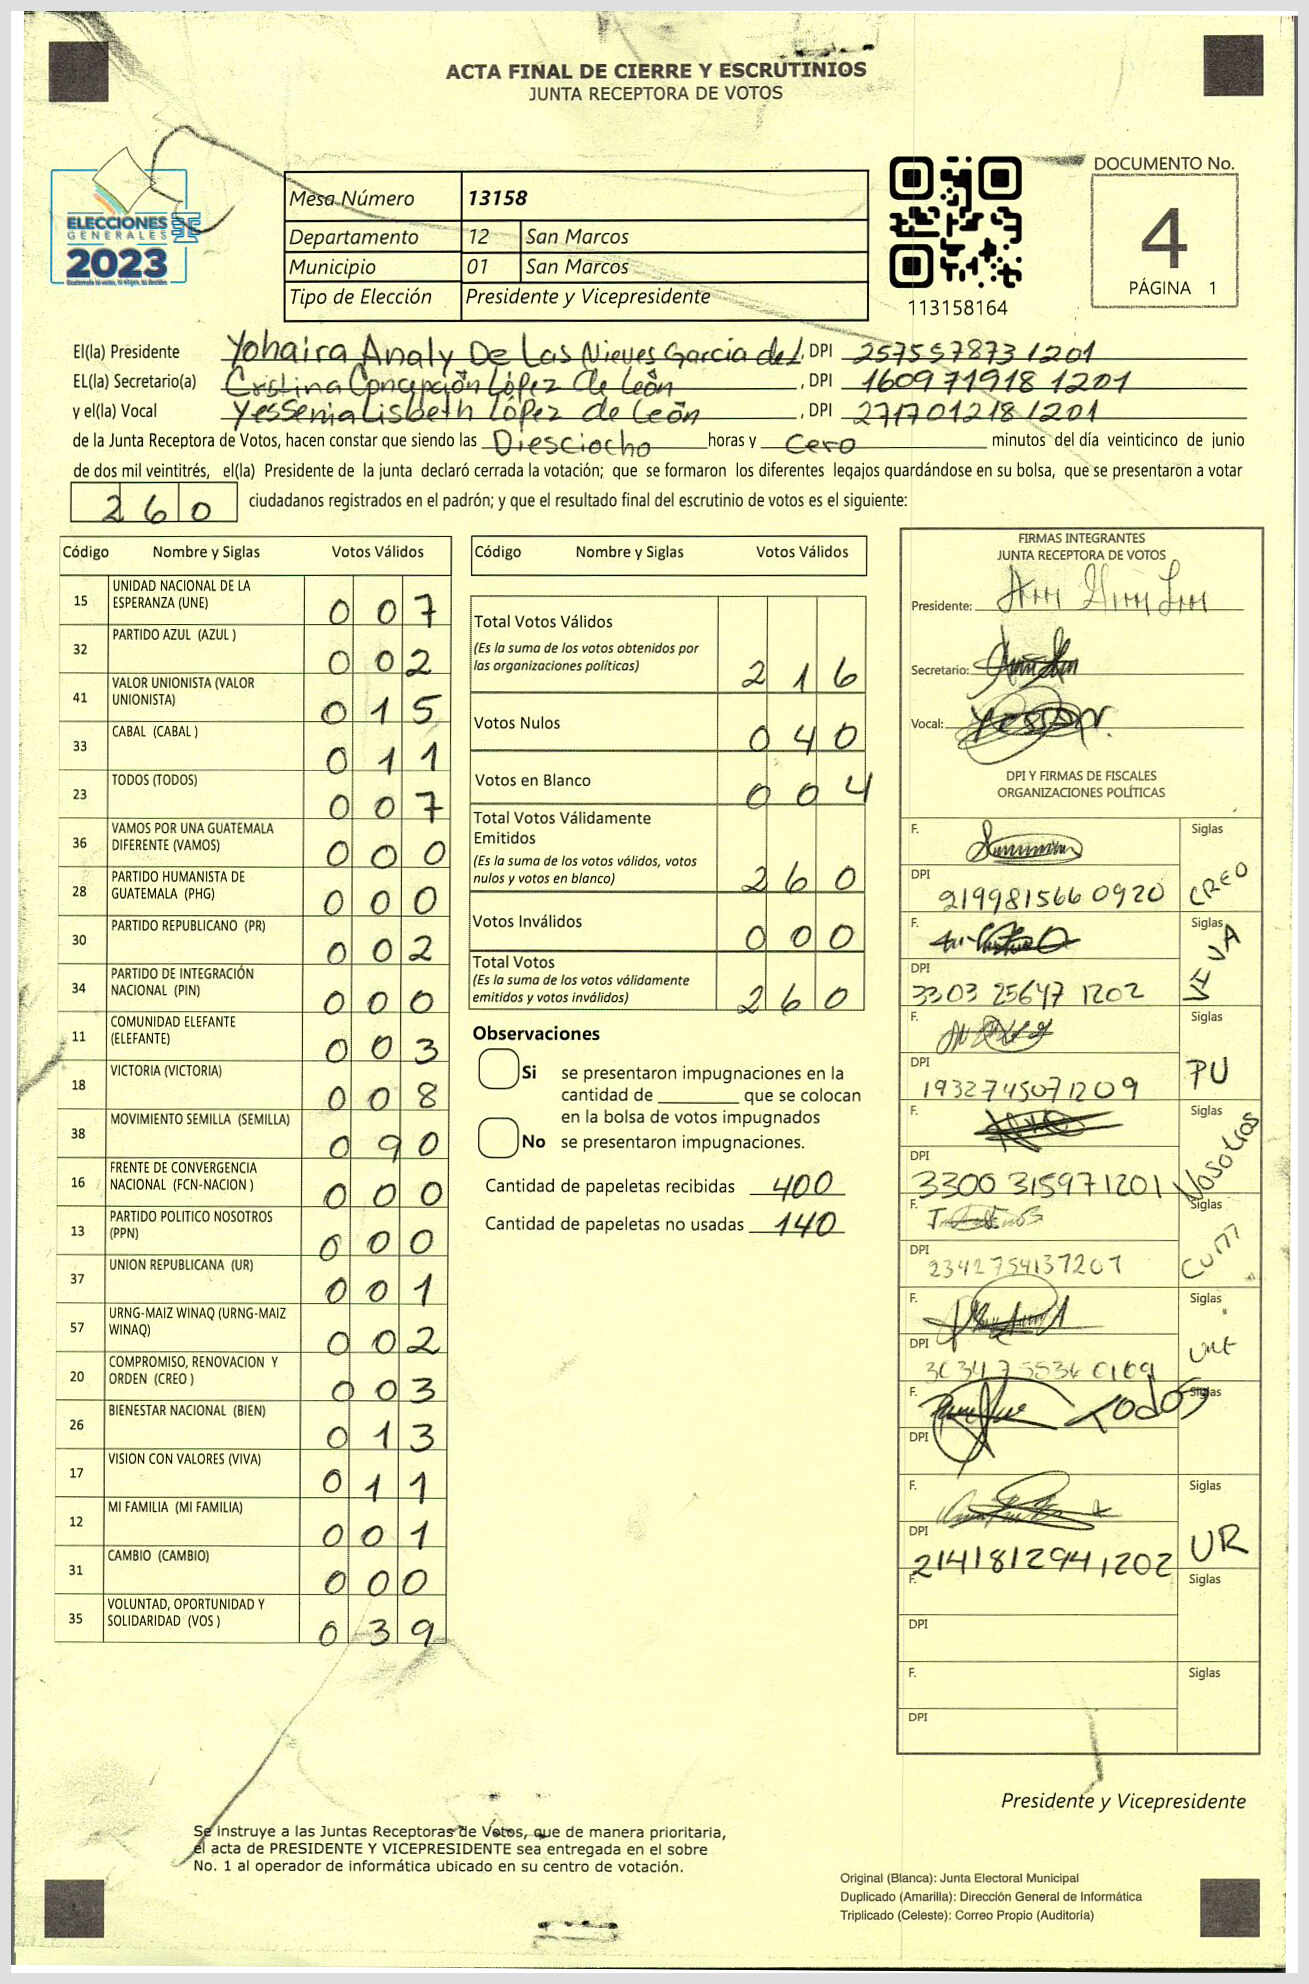 ACTA FINAL DE CIERRE Y ESCRUTINIOS
JUNTA RECEPTORA DE VOTOS
ELECCIONES
GENERALES
2023
Mesa Número 13158
Departamento 12 San Marcos
Municipio 01 San Marcos
Tipo de Elección Presidente y Vicepresidente
113158164
DOCUMENTO No.
4
PÁGINA 1
El(la) Presidente Yohaira Analy De Las Nieves Garcia de L, DPI 257557873 1201
EL(la) Secretario(a) Cristina Concepción López de León, DPI 160971918 1201
y el(la) Vocal Yessenia Lisbeth López de León, DPI 271701218 1201
de la Junta Receptora de Votos, hacen constar que siendo las Diesciocho horas y Cero minutos del día veinticinco de junio
de dos mil veintitrés, el(la) Presidente de la junta declaró cerrada la votación; que se formaron los diferentes legajos guardándose en su bolsa, que se presentaron a votar
260 ciudadanos registrados en el padrón; y que el resultado final del escrutinio de votos es el siguiente:
Código Nombre y Siglas Votos Válidos
15 UNIDAD NACIONAL DE LA ESPERANZA (UNE) 007
32 PARTIDO AZUL (AZUL ) 002
41 VALOR UNIONISTA (VALOR UNIONISTA) 015
33 CABAL (CABAL ) 011
23 TODOS (TODOS) 007
36 VAMOS POR UNA GUATEMALA DIFERENTE (VAMOS) 000
28 PARTIDO HUMANISTA DE GUATEMALA (PHG) 000
30 PARTIDO REPUBLICANO (PR) 002
34 PARTIDO DE INTEGRACIÓN NACIONAL (PIN) 000
11 COMUNIDAD ELEFANTE (ELEFANTE) 003
18 VICTORIA (VICTORIA) 008
38 MOVIMIENTO SEMILLA (SEMILLA) 090
16 FRENTE DE CONVERGENCIA NACIONAL (FCN-NACION ) 000
13 PARTIDO POLITICO NOSOTROS (PPN) 000
37 UNION REPUBLICANA (UR) 001
57 URNG-MAIZ WINAQ (URNG-MAIZ WINAQ) 002
20 COMPROMISO, RENOVACION Y ORDEN (CREO ) 003
26 BIENESTAR NACIONAL (BIEN) 013
17 VISION CON VALORES (VIVA) 011
12 MI FAMILIA (MI FAMILIA) 001
31 CAMBIO (CAMBIO) 000
35 VOLUNTAD, OPORTUNIDAD Y SOLIDARIDAD (VOS ) 039
Código Nombre y Siglas Votos Válidos
Total Votos Válidos 216
(Es la suma de los votos obtenidos por
las organizaciones políticas)
Votos Nulos 040
Votos en Blanco 004
Total Votos Válidamente
Emitidos 260
(Es la suma de los votos válidos, votos
nulos y votos en blanco)
Votos Inválidos 000
Total Votos 260
(Es la suma de los votos válidamente
emitidos y votos inválidos)
Observaciones
Si se presentaron impugnaciones en la
cantidad de ________ que se colocan
en la bolsa de votos impugnados
No se presentaron impugnaciones.
Cantidad de papeletas recibidas 400
Cantidad de papeletas no usadas 140
FIRMAS INTEGRANTES
JUNTA RECEPTORA DE VOTOS
Presidente:
Secretario:
Vocal:
DPI Y FIRMAS DE FISCALES
ORGANIZACIONES POLÍTICAS
F. Siglas CREO
DPI 219981566 0920
F. Siglas VIVA
DPI 3303 25647 1202
F. Siglas PU
DPI 1932745071209
F. Siglas Nosotros
DPI 3300 315971201
F. Siglas
DPI
F. Siglas
DPI
F. Siglas TODOS
DPI
F. Siglas UR
DPI 2141812941202
F. Siglas
DPI
F. Siglas
DPI
Presidente y Vicepresidente
Se instruye a las Juntas Receptoras de Votos, que de manera prioritaria,
el acta de PRESIDENTE Y VICEPRESIDENTE sea entregada en el sobre
No. 1 al operador de informática ubicado en su centro de votación.
Original (Blanca): Junta Electoral Municipal
Duplicado (Amarilla): Dirección General de Informática
Triplicado (Celeste): Correo Propio (Auditoría)